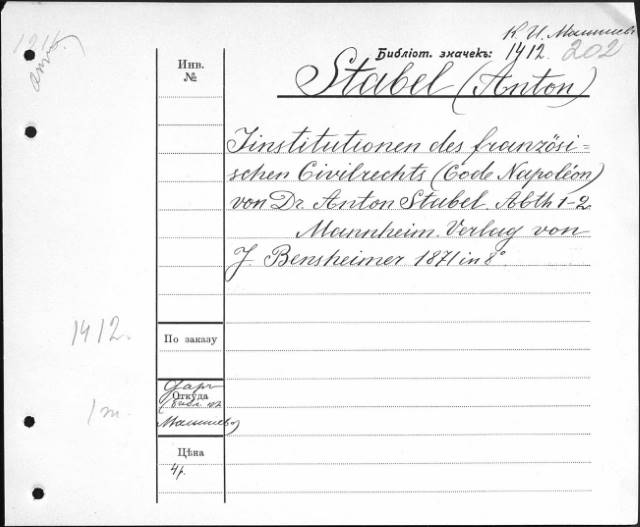 К. И. Малышев
Библіот. значекъ: 1412. 202
Инв.
№
Stabel (Anton)
Iinstitutionen des französi=
schen Civilrechts (Code Napoléon)
von Dr. Anton Stabel. Abth 1-2
Mannheim. Verlag von
J. Bensheimer 1871 in 8°
1412.
По заказу
1 т.
Откуда
Малышева
Цѣна
4р.